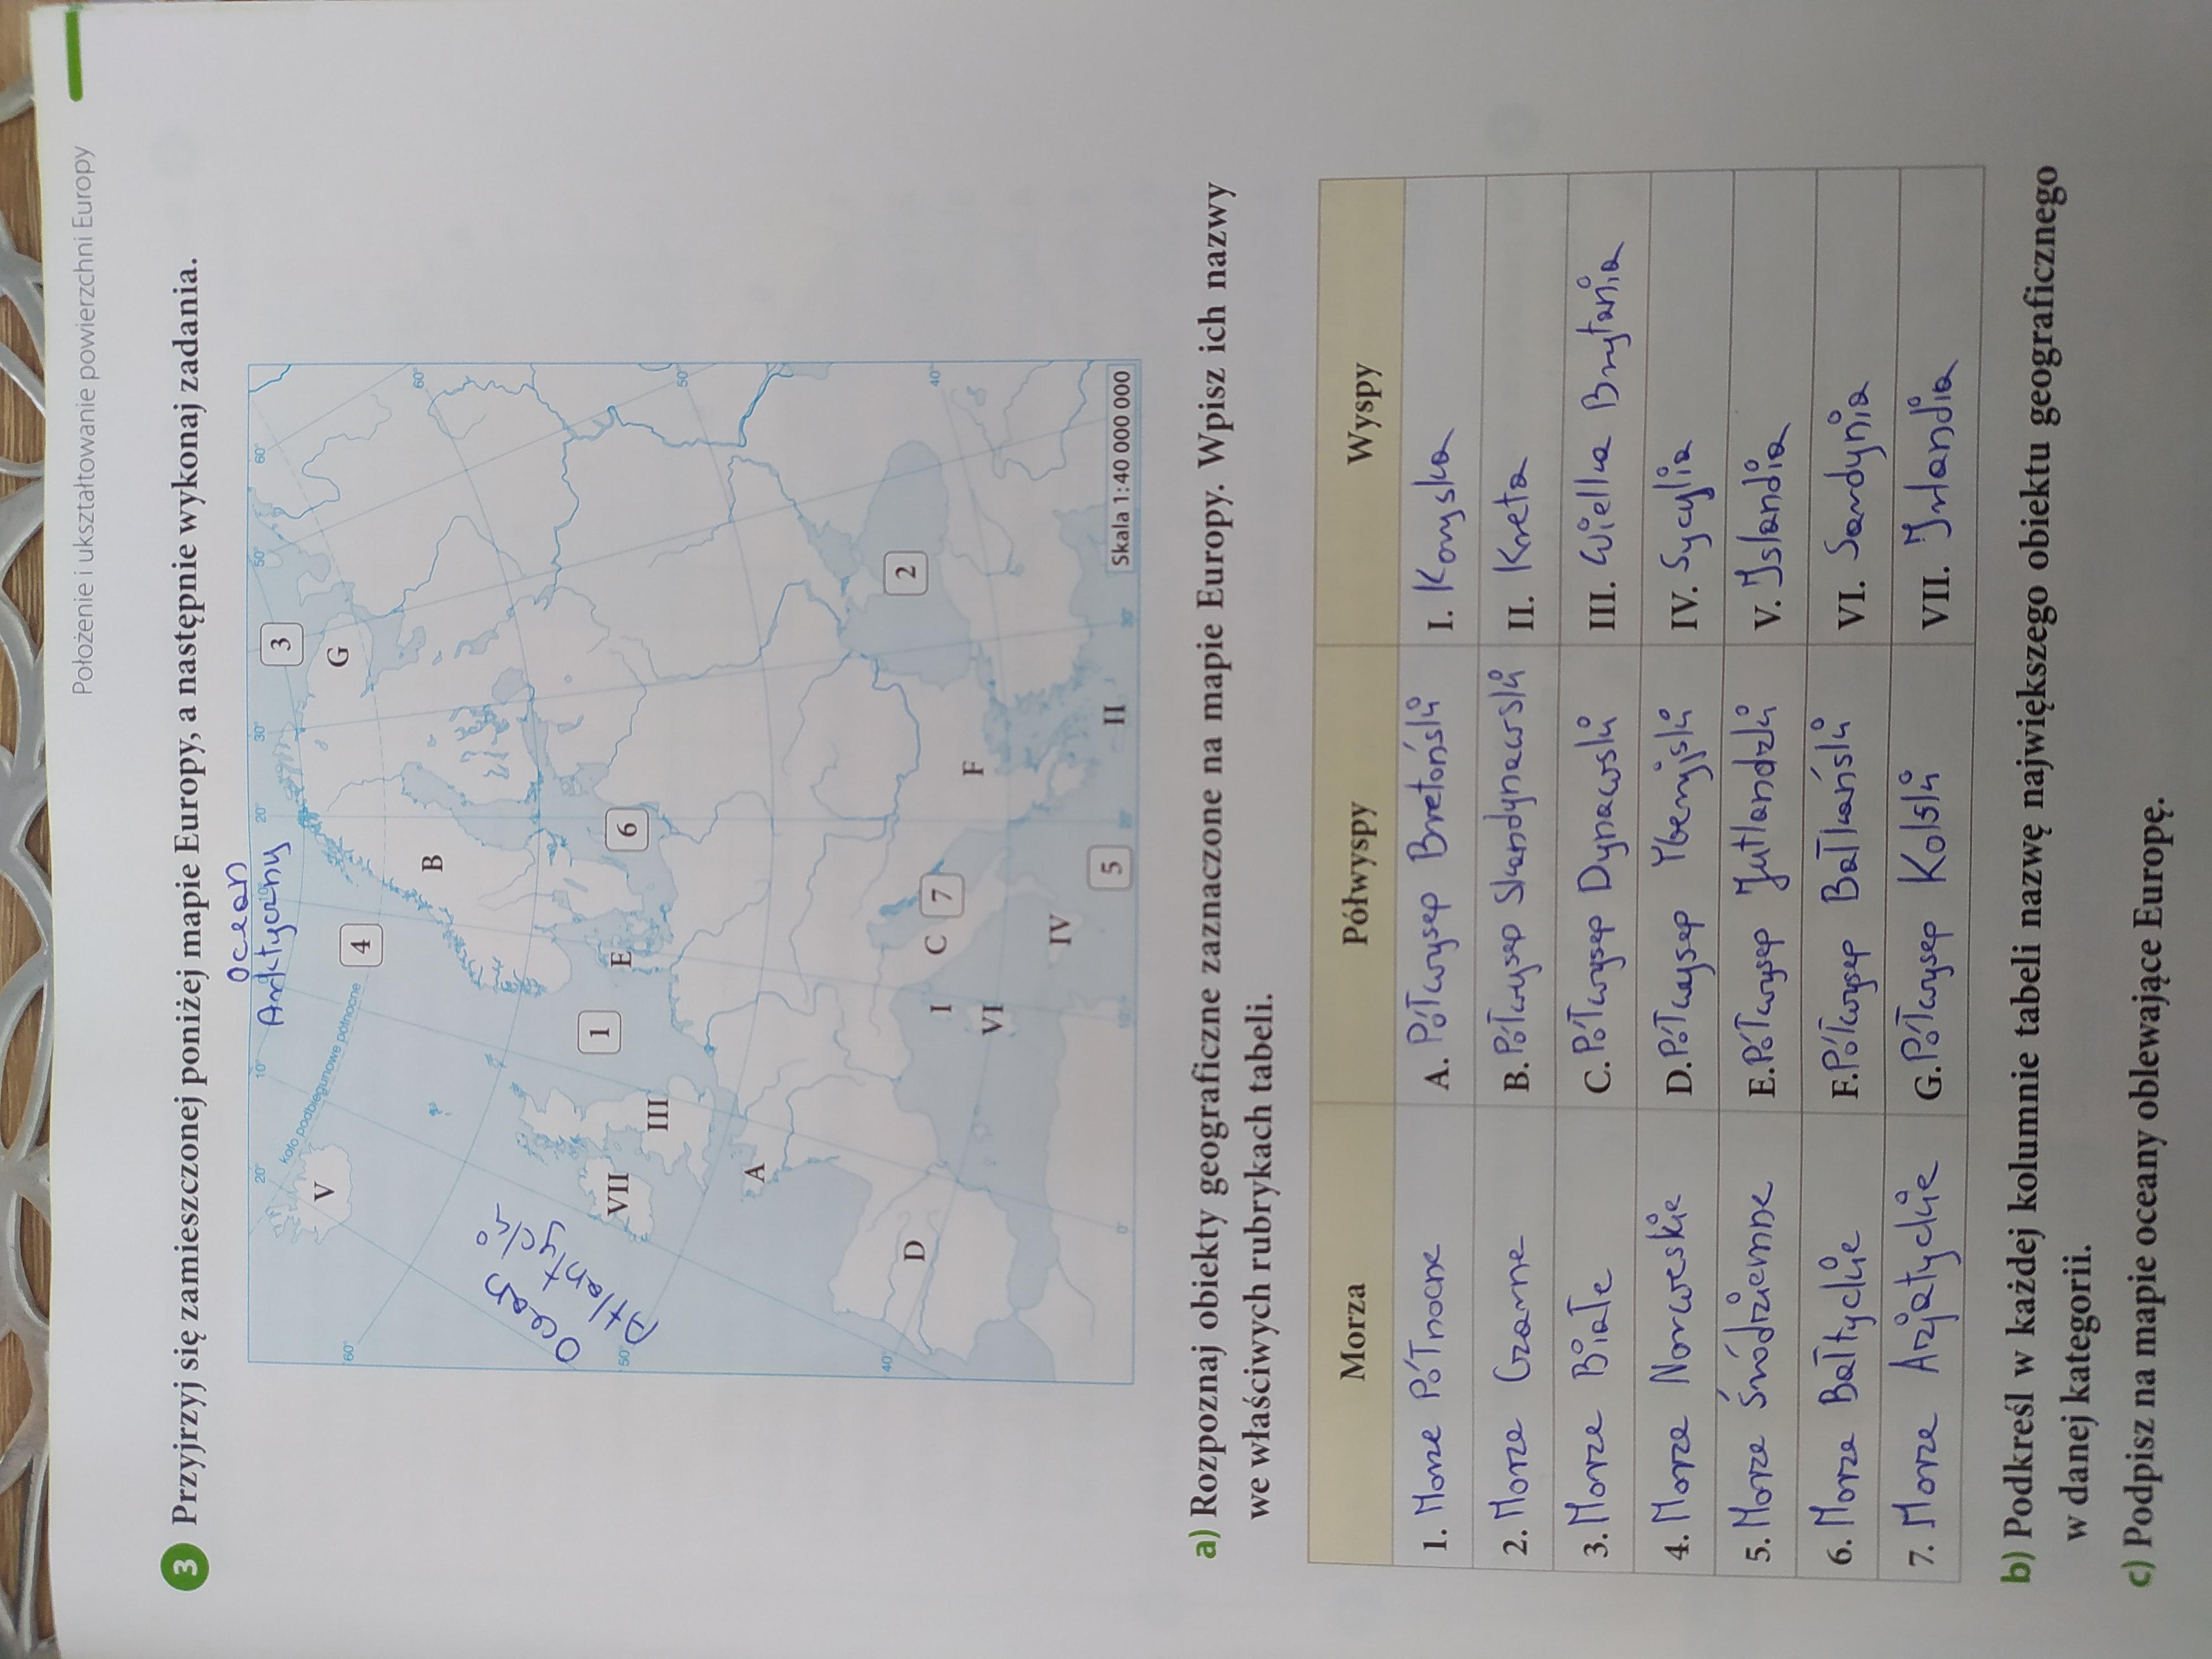 Położenie i ukształtowanie powierzchni Europy
3 Przyjrzyj się zamieszczonej poniżej mapie Europy, a następnie wykonaj zadania.
Ocean
Arktyczny
20° 10° 20° 30° 50° 60°
koło podbiegunowe północne
3
V
4
G
60°
60°
B
Ocean
Atlantycki
VII
1
E
6
50°
III
50°
A
2
40°
D
I
C
7
F
40°
VI
IV
5
II
0° 10°
Skala 1:40 000 000
a) Rozpoznaj obiekty geograficzne zaznaczone na mapie Europy. Wpisz ich nazwy
we właściwych rubrykach tabeli.
Morza Półwyspy Wyspy
1. Morze Północne A. Półwysep Bretoński I. Korsyka
2. Morze Czarne B. Półwysep Skandynawski II. Kreta
3. Morze Białe C. Półwysep Dynawski III. Wielka Brytania
4. Morze Norweskie D. Półwysep Yberyjski IV. Sycylia
5. Morze Śródziemne E. Półwysep Jutlandzki V. Islandia
6. Morze Bałtyckie F. Półwysep Bałkański VI. Sardynia
7. Morze Azjatyckie G. Półwysep Kolski VII. Irlandia
b) Podkreśl w każdej kolumnie tabeli nazwę największego obiektu geograficznego
w danej kategorii.
c) Podpisz na mapie oceany oblewające Europę.